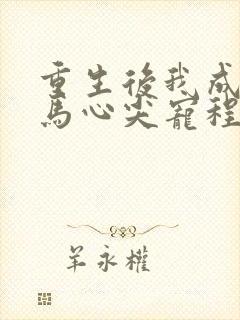 重生後我成
馬心尖寵程
羊永權